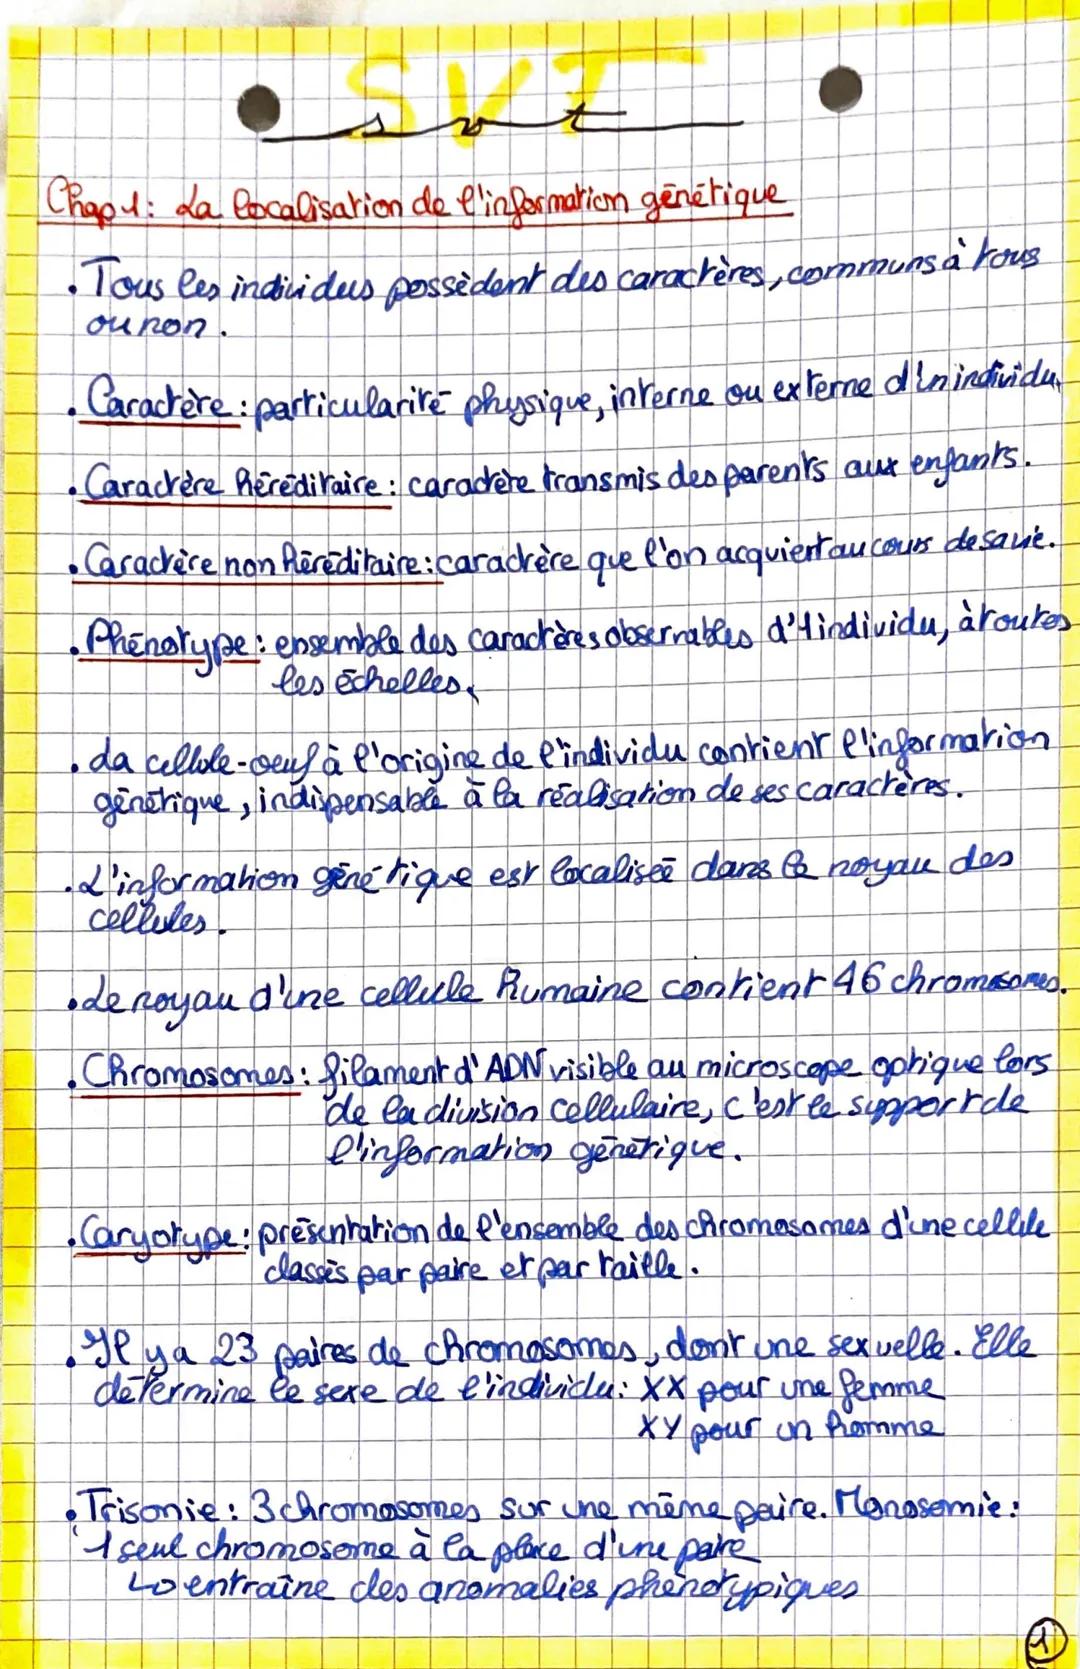 SVT
svt
Chap 1: La localisation de l'information génétique
. Tous les individus possèdent des caractères, communs à tous
ou non.
. Caractère : particularité physique, interne ou externe d'un individu.
. Caractère héréditaire : caractère transmis des parents aux enfants.
. Caractère non héréditaire : caractère que l'on acquiert au cours de sa vie.
. Phénotype : ensemble des caractères observables d'1 individu, à toutes
les échelles.
. La cellule-oeuf à l'origine de l'individu contient l'information
génétique, indispensable à la réalisation de ses caractères.
. L'information génétique est localisée dans le noyau des
cellules.
. Le noyau d'une cellule humaine contient 46 chromosomes.
. Chromosomes : filament d'ADN visible au microscope optique lors
de la division cellulaire, c'est le support de
l'information génétique.
. Caryotype : présentation de l'ensemble des chromosomes d'une cellule
classés par paire et par taille.
. Il y a 23 paires de chromosomes, dont une sexuelle. Elle
détermine le sexe de l'individu : XX pour une femme
XY pour un homme
. Trisomie : 3 chromosomes sur une même paire. Monosomie :
1 seul chromosome à la place d'une paire
↳ entraîne des anomalies phénotypiques
1